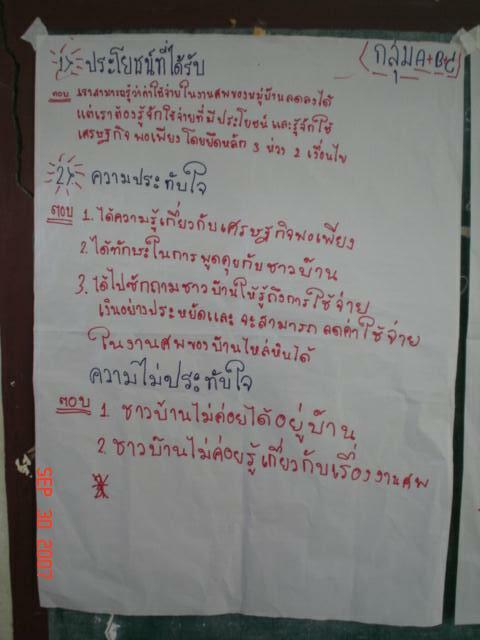 (กลุ่มA+B+C)
1) ประโยชน์ที่ได้รับ
ตอบ เราสามารถรู้ว่าค่าใช้จ่ายในงานศพของหมู่บ้านลดลงได้
แต่เราต้องรู้จักใช้จ่ายที่มีประโยชน์ และรู้จักใช้
เศรษฐกิจพอเพียง โดยยึดหลัก 3 ห่วง 2 เงื่อนไข
2) ความประทับใจ
ตอบ 1. ได้ความรู้เกี่ยวกับเศรษฐกิจพอเพียง
2. ได้ทักษะในการพูดคุยกับชาวบ้าน
3. ได้ไปซักถามชาวบ้านให้รู้ถึงการใช้จ่าย
เงินอย่างประหยัดและ จะสามารถ ลดค่าใช้จ่าย
ในงานศพของบ้านไหล่หินได้
ความไม่ประทับใจ
ตอบ 1. ชาวบ้านไม่ค่อยได้อยู่บ้าน
2. ชาวบ้านไม่ค่อยรู้เกี่ยวกับเรื่องงานศพ
SEP 30 2007